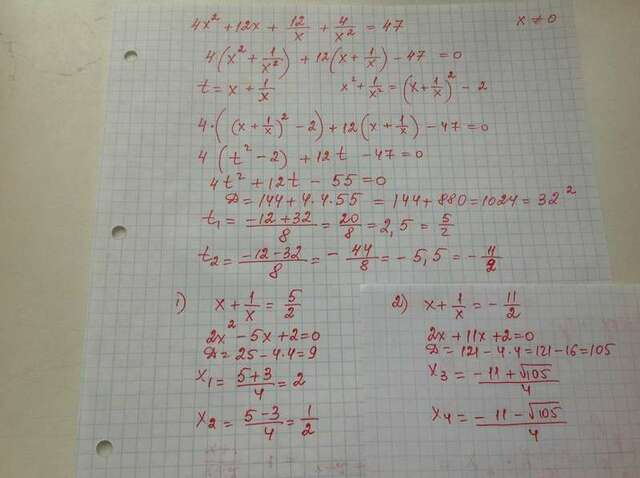 4x² + 12x + 12/x + 4/x² = 47 x ≠ 0
4(x² + 1/x²) + 12(x + 1/x) − 47 = 0
t = x + 1/x x² + 1/x² = (x + 1/x)² − 2
4·((x + 1/x)² − 2) + 12(x + 1/x) − 47 = 0
4(t² − 2) + 12t − 47 = 0
4t² + 12t − 55 = 0
D = 144 + 4·4·55 = 144 + 880 = 1024 = 32²
t₁ = (−12 + 32)/8 = 20/8 = 2,5 = 5/2
t₂ = (−12 − 32)/8 = − 44/8 = − 5,5 = − 11/2
1) x + 1/x = 5/2
2x² − 5x + 2 = 0
D = 25 − 4·4 = 9
x₁ = (5 + 3)/4 = 2
x₂ = (5 − 3)/4 = 1/2
2) x + 1/x = − 11/2
2x + 11x + 2 = 0
D = 121 − 4·4 = 121 − 16 = 105
x₃ = (− 11 + √105)/4
x₄ = (− 11 − √105)/4